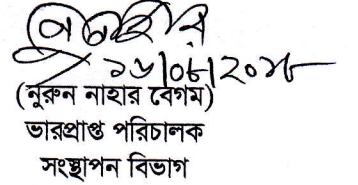 ১৬/০৮/২০১৮
(নুরুন নাহার বেগম)
ভারপ্রাপ্ত পরিচালক
সংস্থাপন বিভাগ